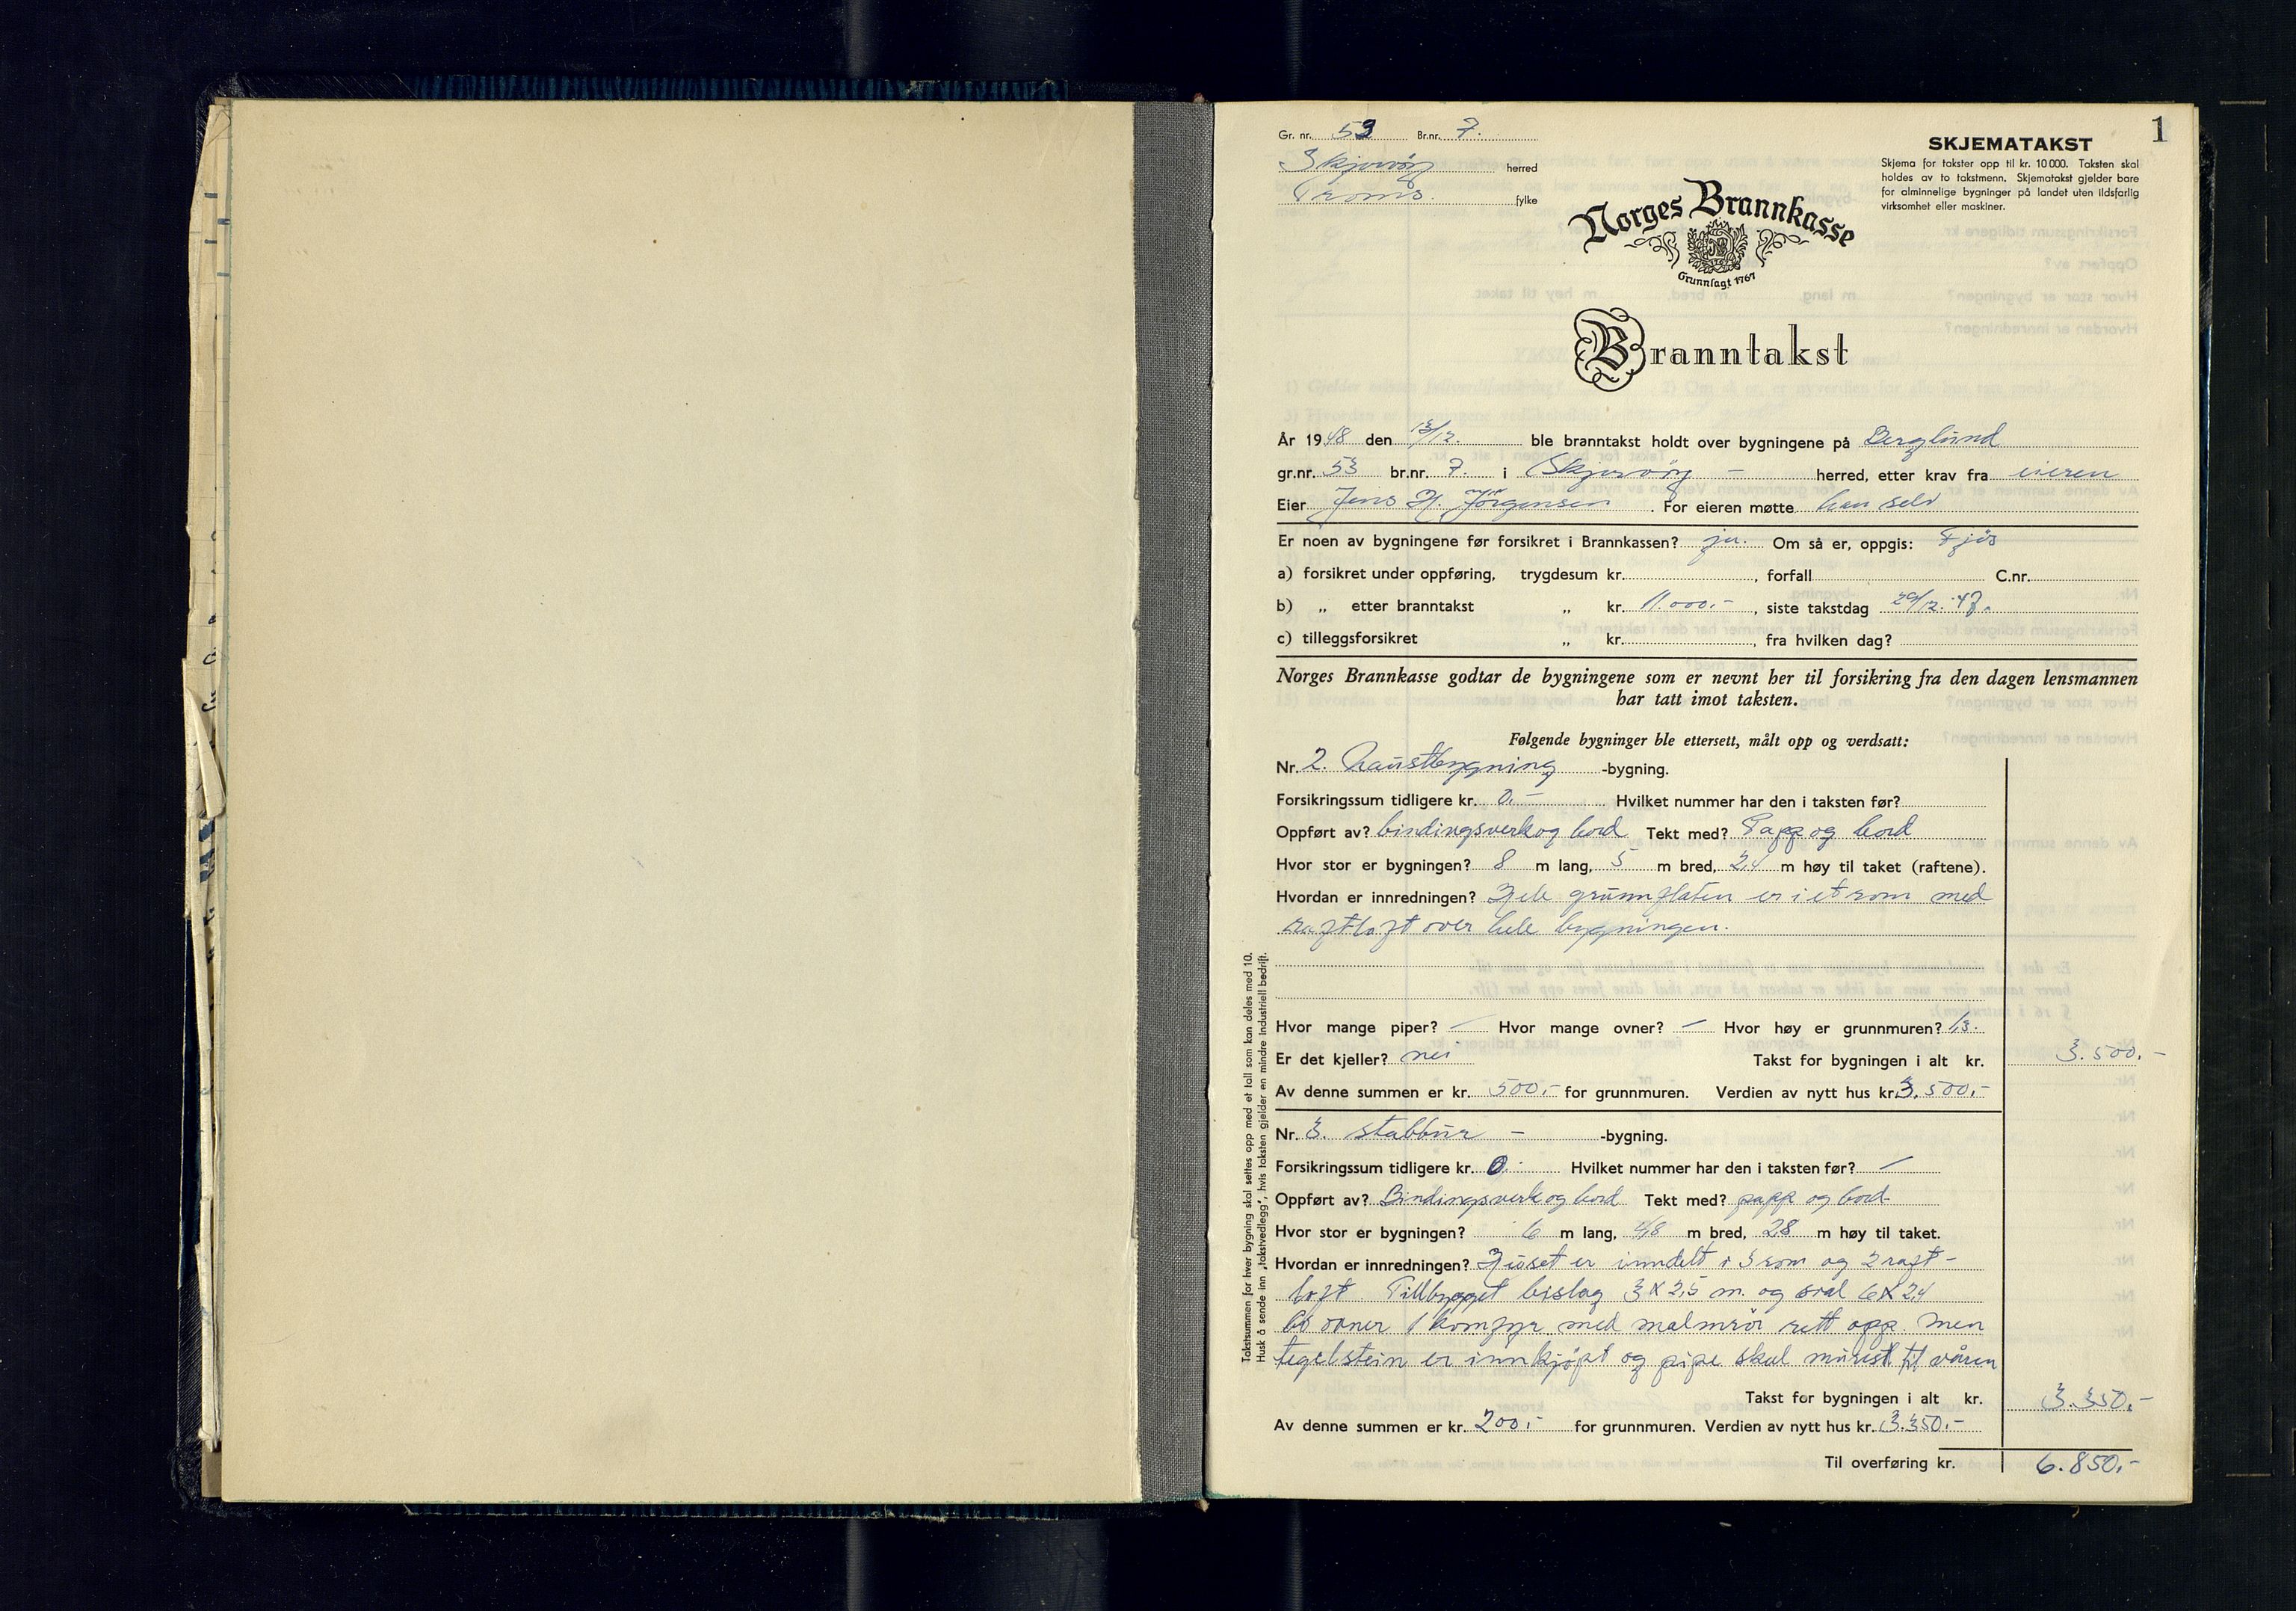 1
Gr. nr. 53 Br.nr. 7.
Skjervöy herred
Troms. fylke
SKJEMATAKST
Skjema for takster opp til kr. 10 000. Taksten skal
holdes av to takstmenn. Skjematakst gjelder bare
for alminnelige bygninger på landet uten ildsfarlig
virksomhet eller maskiner.
Norges Brannkasse
Grunnlagt 1767
Branntakst
År 1948 den 13/12. ble branntakst holdt over bygningene på Berglund
gr.nr. 53 br.nr. 7. i Skjervöy – herred, etter krav fra eieren
Eier Jens H. Jörgensen. For eieren møtte han selv
Er noen av bygningene før forsikret i Brannkassen? ja. Om så er, oppgis: Fjös
a) forsikret under oppføring, trygdesum kr. , forfall C.nr.
b) „ etter branntakst „ kr. 11.000.- , siste takstdag 29/12.47.
c) tilleggsforsikret „ kr. , fra hvilken dag?
Norges Brannkasse godtar de bygningene som er nevnt her til forsikring fra den dagen lensmannen
har tatt imot taksten.
Følgende bygninger ble ettersett, målt opp og verdsatt:
Nr. 2. Naustbygning -bygning.
Forsikringssum tidligere kr. 0.- Hvilket nummer har den i taksten før?
Oppført av? bindingsverk og bord Tekt med? Papp og bord
Hvor stor er bygningen? 8 m lang, 5 m bred, 2,4 m høy til taket (raftene).
Hvordan er innredningen? Hele grunnflaten er i et rom med
raftloft over hele bygningen.
Hvor mange piper? – Hvor mange ovner? – Hvor høy er grunnmuren? 1,3.
Er det kjeller? nei Takst for bygningen i alt kr. 3.500.-
Av denne summen er kr. 500.- for grunnmuren. Verdien av nytt hus kr. 3.500.-
Nr. 3. stabbur – -bygning.
Forsikringssum tidligere kr. 0.- Hvilket nummer har den i taksten før? –
Oppført av? Bindingsverk og bord Tekt med? papp og bord
Hvor stor er bygningen? 6 m lang, 4,8 m bred, 2,8 m høy til taket.
Hvordan er innredningen? Huset er inndelt i 3 rom og 2 raft-
loft. Tillbygget bislag 3 X 2,5 m. og sval 6 X 2,4
ovner 1 komfyr med malmrör rett opp. Men
tegelstein er innkjöpt og pipe skal murest til våren
Takst for bygningen i alt kr. 3.350.-
Av denne summen er kr. 200.- for grunnmuren. Verdien av nytt hus kr. 3.350.-
Til overføring kr. 6.850.-
Takstsummen for hver bygning skal settes opp med et tall som kan deles med 10.
Husk å sende inn „takstvedlegg”, hvis taksten gjelder en mindre industriell bedrift.